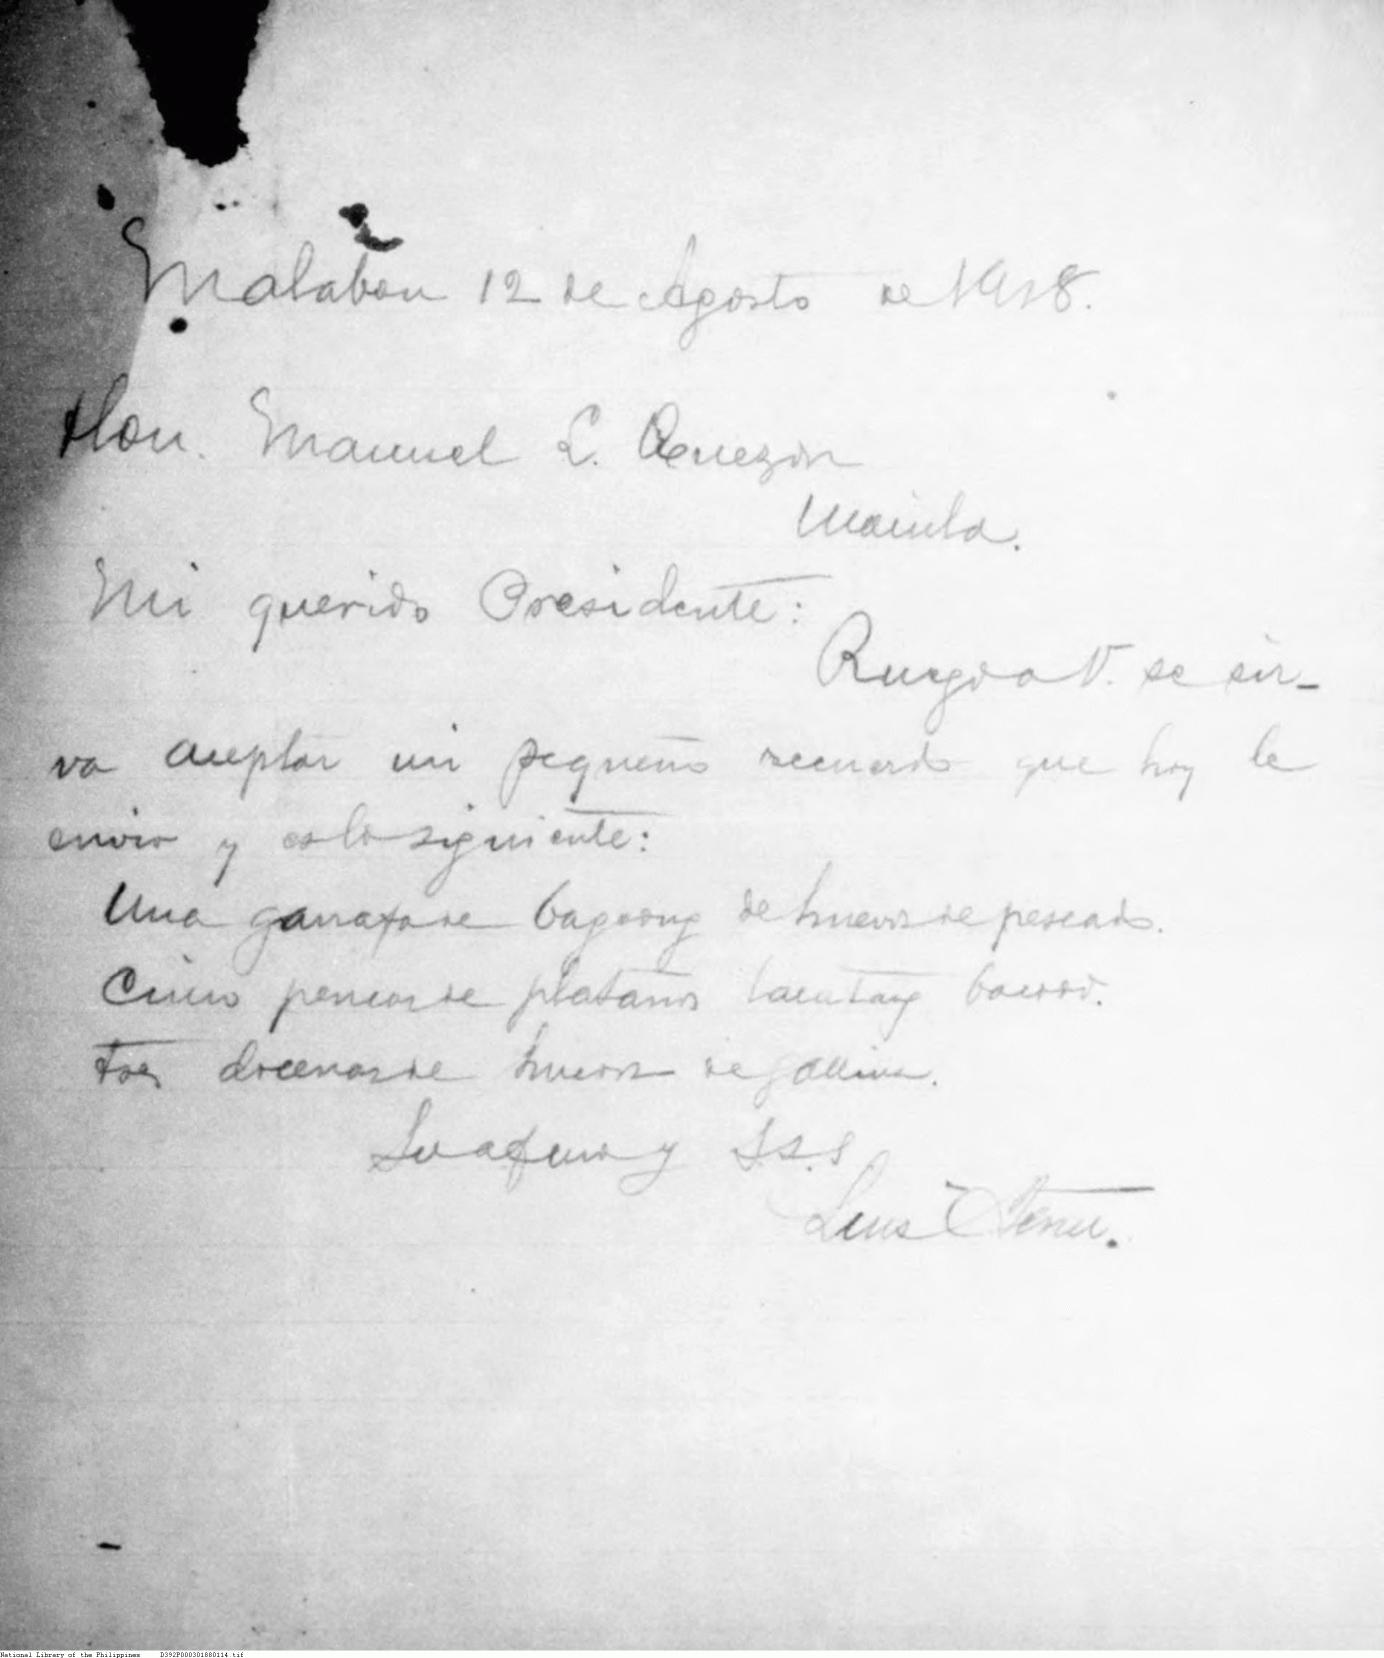 Malabon 12 de Agosto de 1918.
Hon. Manuel L. Quezon
Manila.
Mi querido Presidente:
Ruego a V. se sir-
va aceptar mi pequeño recuerdo que hoy le
envio y es lo siguiente:
Una garrafa de bagoong de huevos de pescado.
Cinco pencas de platanos
Tres docenas de huevos de gallina.
Su afmo y S.S.S
Luis
National Library of the Philippines D392P000301880114.tif